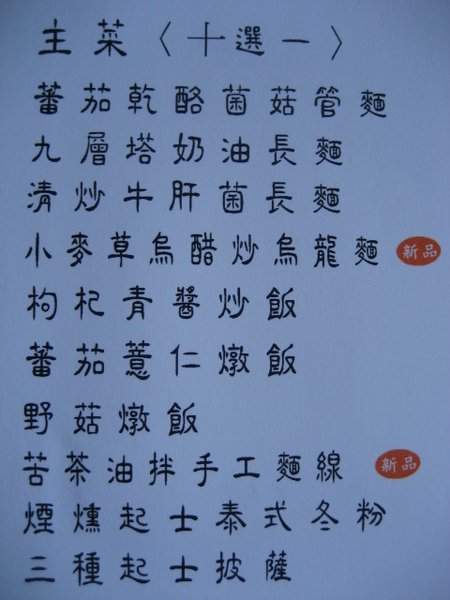 主菜〈十選一〉
蕃茄乾酪菌菇管麵
九層塔奶油長麵
清炒牛肝菌長麵
小麥草烏醋炒烏龍麵 新品
枸杞青醬炒飯
蕃茄薏仁燉飯
野菇燉飯
苦茶油拌手工麵線 新品
煙燻起士泰式冬粉
三種起士披薩